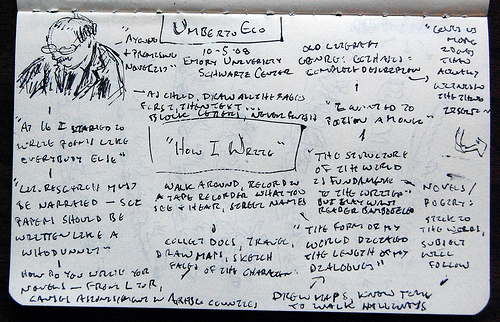 UMBERTO ECO
10-5-08
EMORY UNIVERSITY
SCHWARTZ CENTER
"A YOUNG
+ PROMISING
NOVELIST"
- AS CHILD, DRAW ALL THE PAGES
FIRST, THEN TEXT...
BLOCK LETTERS, NEVER FINISH
"HOW I WRITE"
WALK AROUND, RECORD IN
A TAPE RECORDER WHAT YOU
SEE + HEAR, STREET NAMES
COLLECT DOCS, TRAVEL,
DRAW MAPS, SKETCH
FACES OF THE CHARACTER
"AT 16 I STARTED TO
WRITE POEMS LIKE
EVERYBODY ELSE"
RESEARCH MUST
BE NARRATED -
PAPERS SHOULD BE
WRITTEN LIKE A
WHODUNNIT"
HOW DO YOU WRITE YOR
NOVELS - FROM L TO R,
CAUSES ASTONISHMENT IN ARABIC COUNTRIES
OLD LITERARY
GENRE:
COMPLETE DESCRIPTION
"I WANTED TO
POISON A MONK"
"THE STRUCTURE
OF THE WORLD
IS FUNDAMENTAL
TO THE WRITING"
BUT
READER BAMBOOZLED
"THE FORM OF MY
WORLD DICTATED
THE LENGTH OF MY
DIALOGUES"
DREW MAPS, KNEW TIME
TO WALK HALLWAYS
MORE
THAN
NOVELS/
POETRY:
STICK TO
THE WORDS,
SUBJECT
WILL
FOLLOW